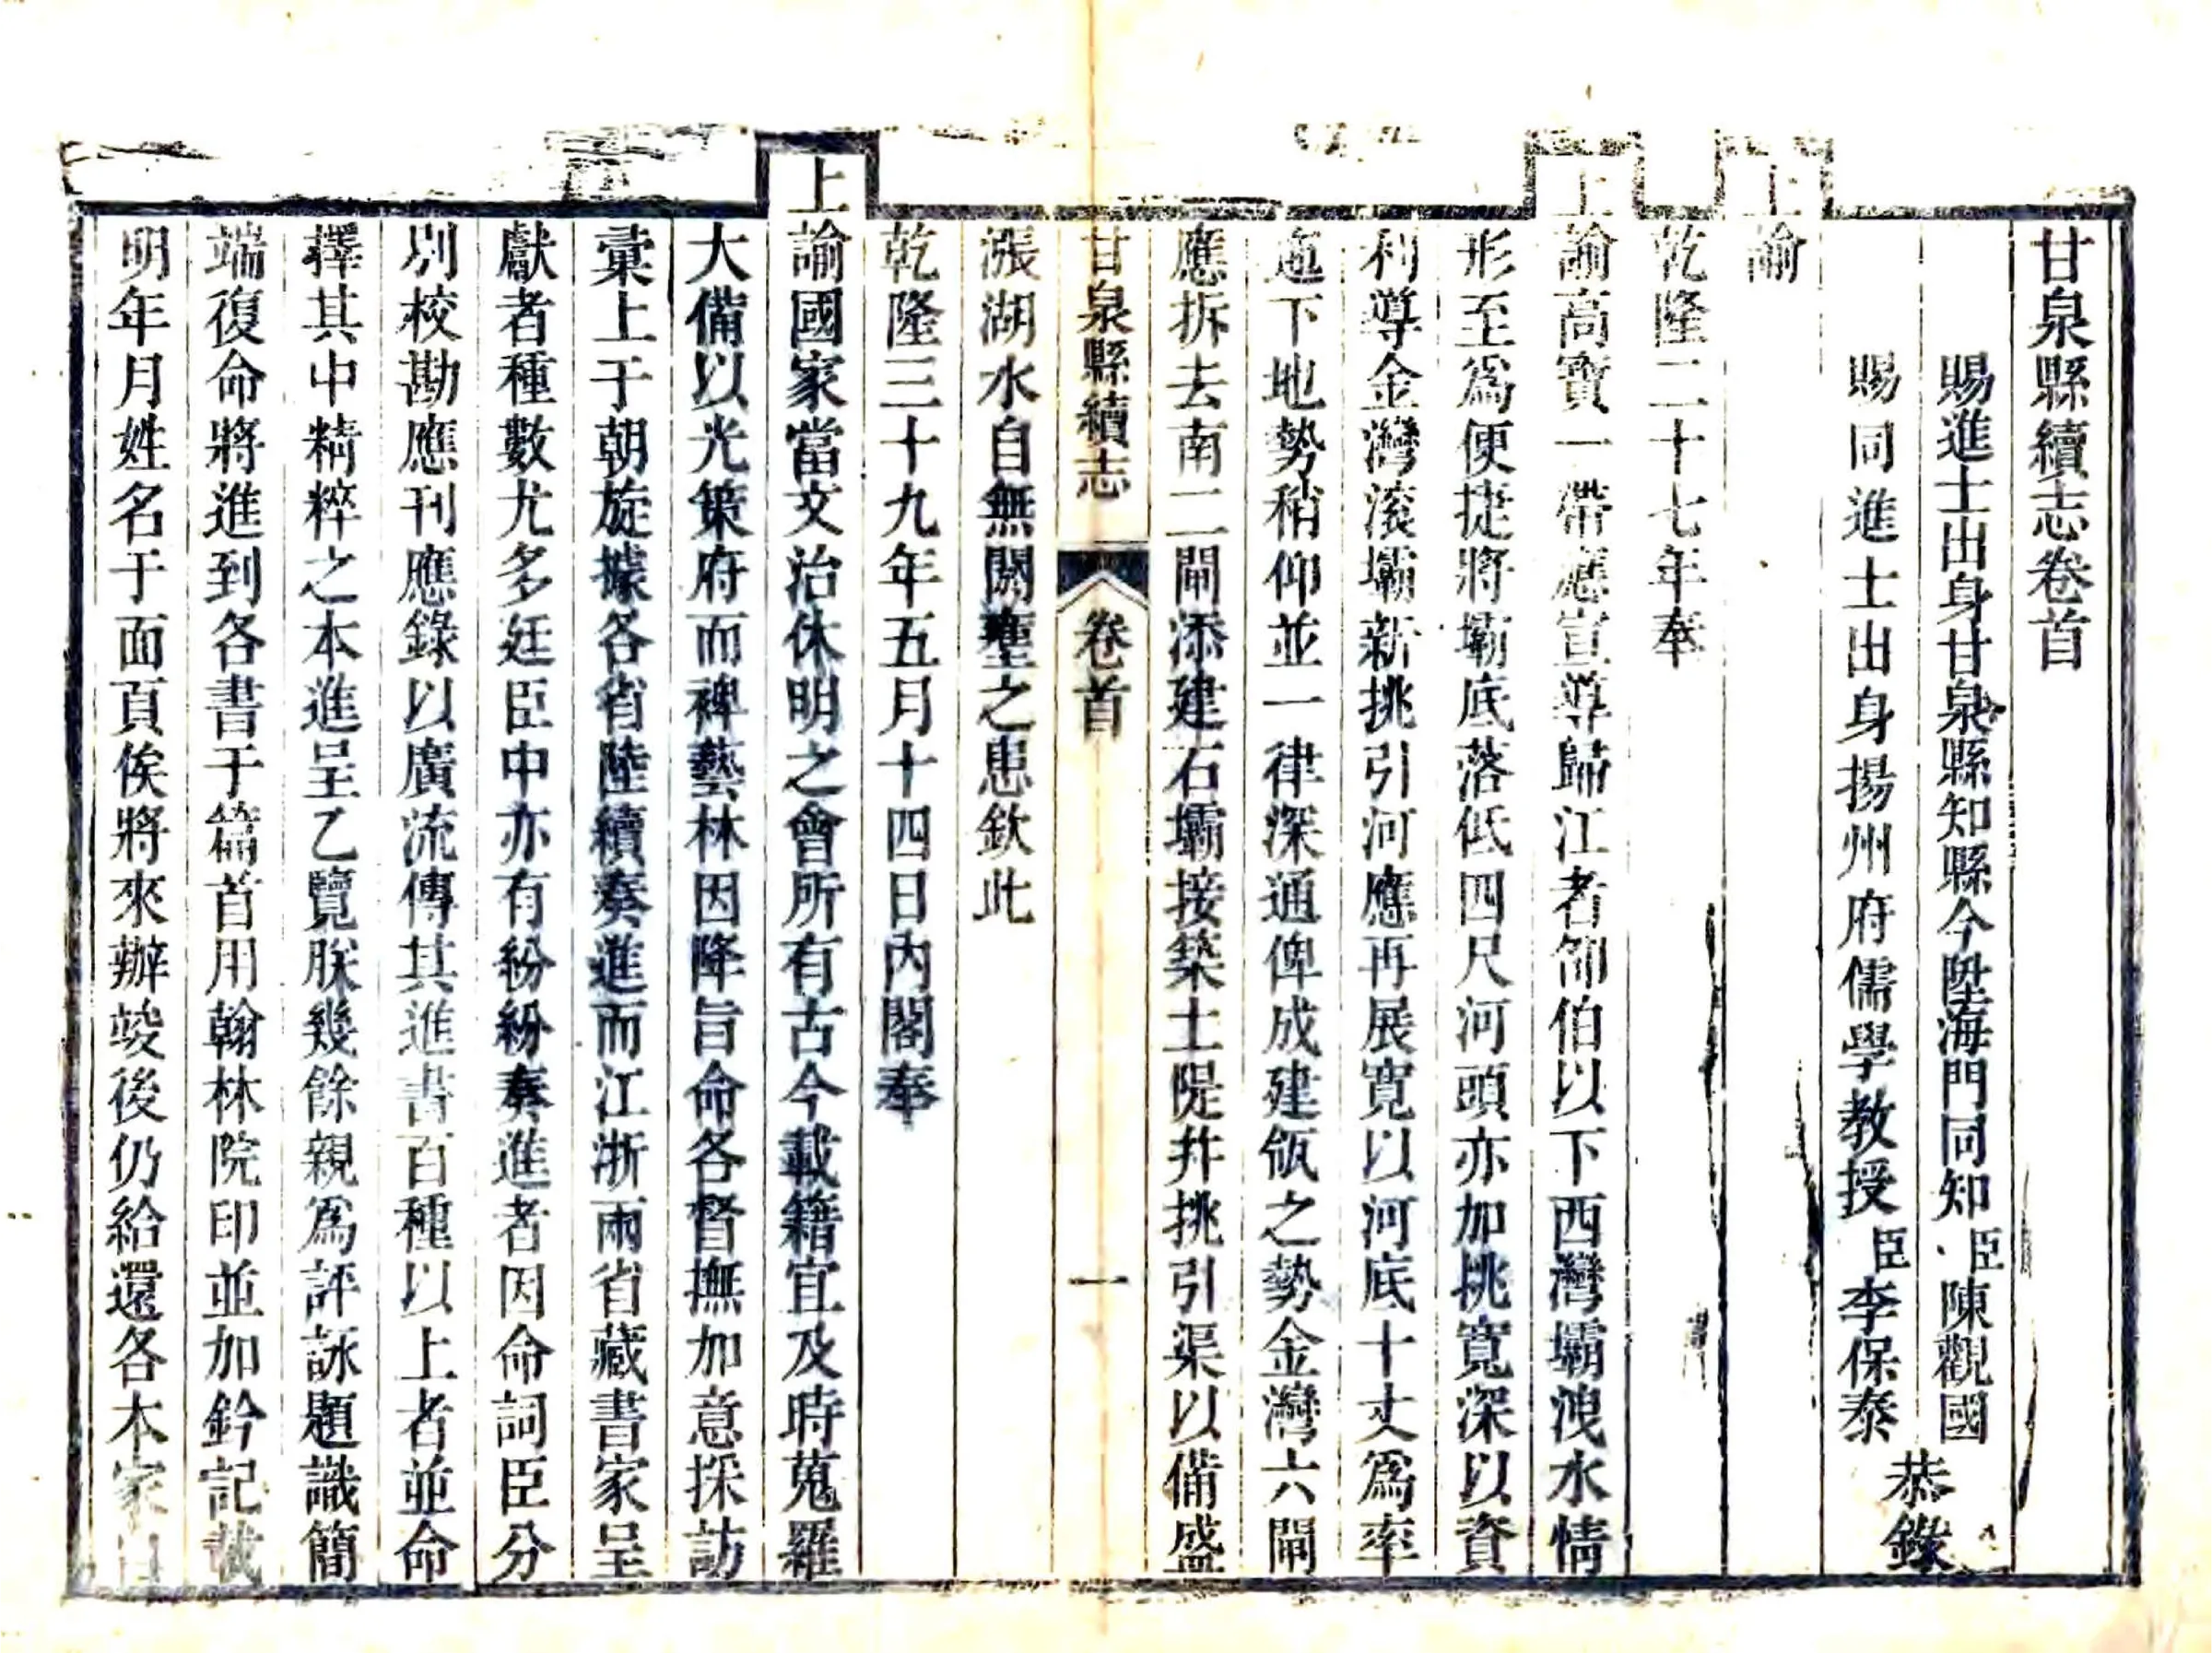 甘泉縣續志卷首
賜進士出身甘泉縣知縣今陞海門同知臣陳觀國
賜同進士出身揚州府儒學教授臣李保泰
恭錄
上諭
乾隆二十七年奉
上諭高寶一帶應宣導歸江者邵伯以下西灣壩洩水情
形至爲便捷將壩底落低四尺河頭亦加挑寬深以資
利導金灣滚壩新挑引河應再展寬以河底十丈爲率
迤下地勢稍仰並一律深通俾成建瓴之勢金灣六閘
應拆去南二閘添建石壩接築土隄幷挑引渠以備盛
甘泉縣續志 卷首 一
漲湖水自無閼壅之患欽此
乾隆三十九年五月十四日內閣奉
上諭國家當文治休明之會所有古今載籍宜及時蒐羅
大備以光策府而裨藝林因降旨命各督撫加意採訪
彙上于朝旋據各省陸續奏進而江浙兩省藏書家呈
獻者種數尤多廷臣中亦有紛紛奏進者因命詞臣分
別校勘應刊應錄以廣流傳其進書百種以上者並命
擇其中精粹之本進呈乙覽朕幾餘親爲評詠題識簡
端復命將進到各書于篇首用翰林院印並加鈐記載
明年月姓名于面頁俟將來辦竣後仍給還各本家自